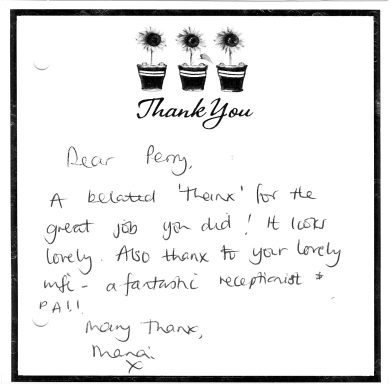 Thank You
Dear Perry,
A belated 'Thanx' for the
great job you did! It looks
lovely. Also thanx to your lovely
wife - a fantastic receptionist &
PA!!
Many Thanx,
x